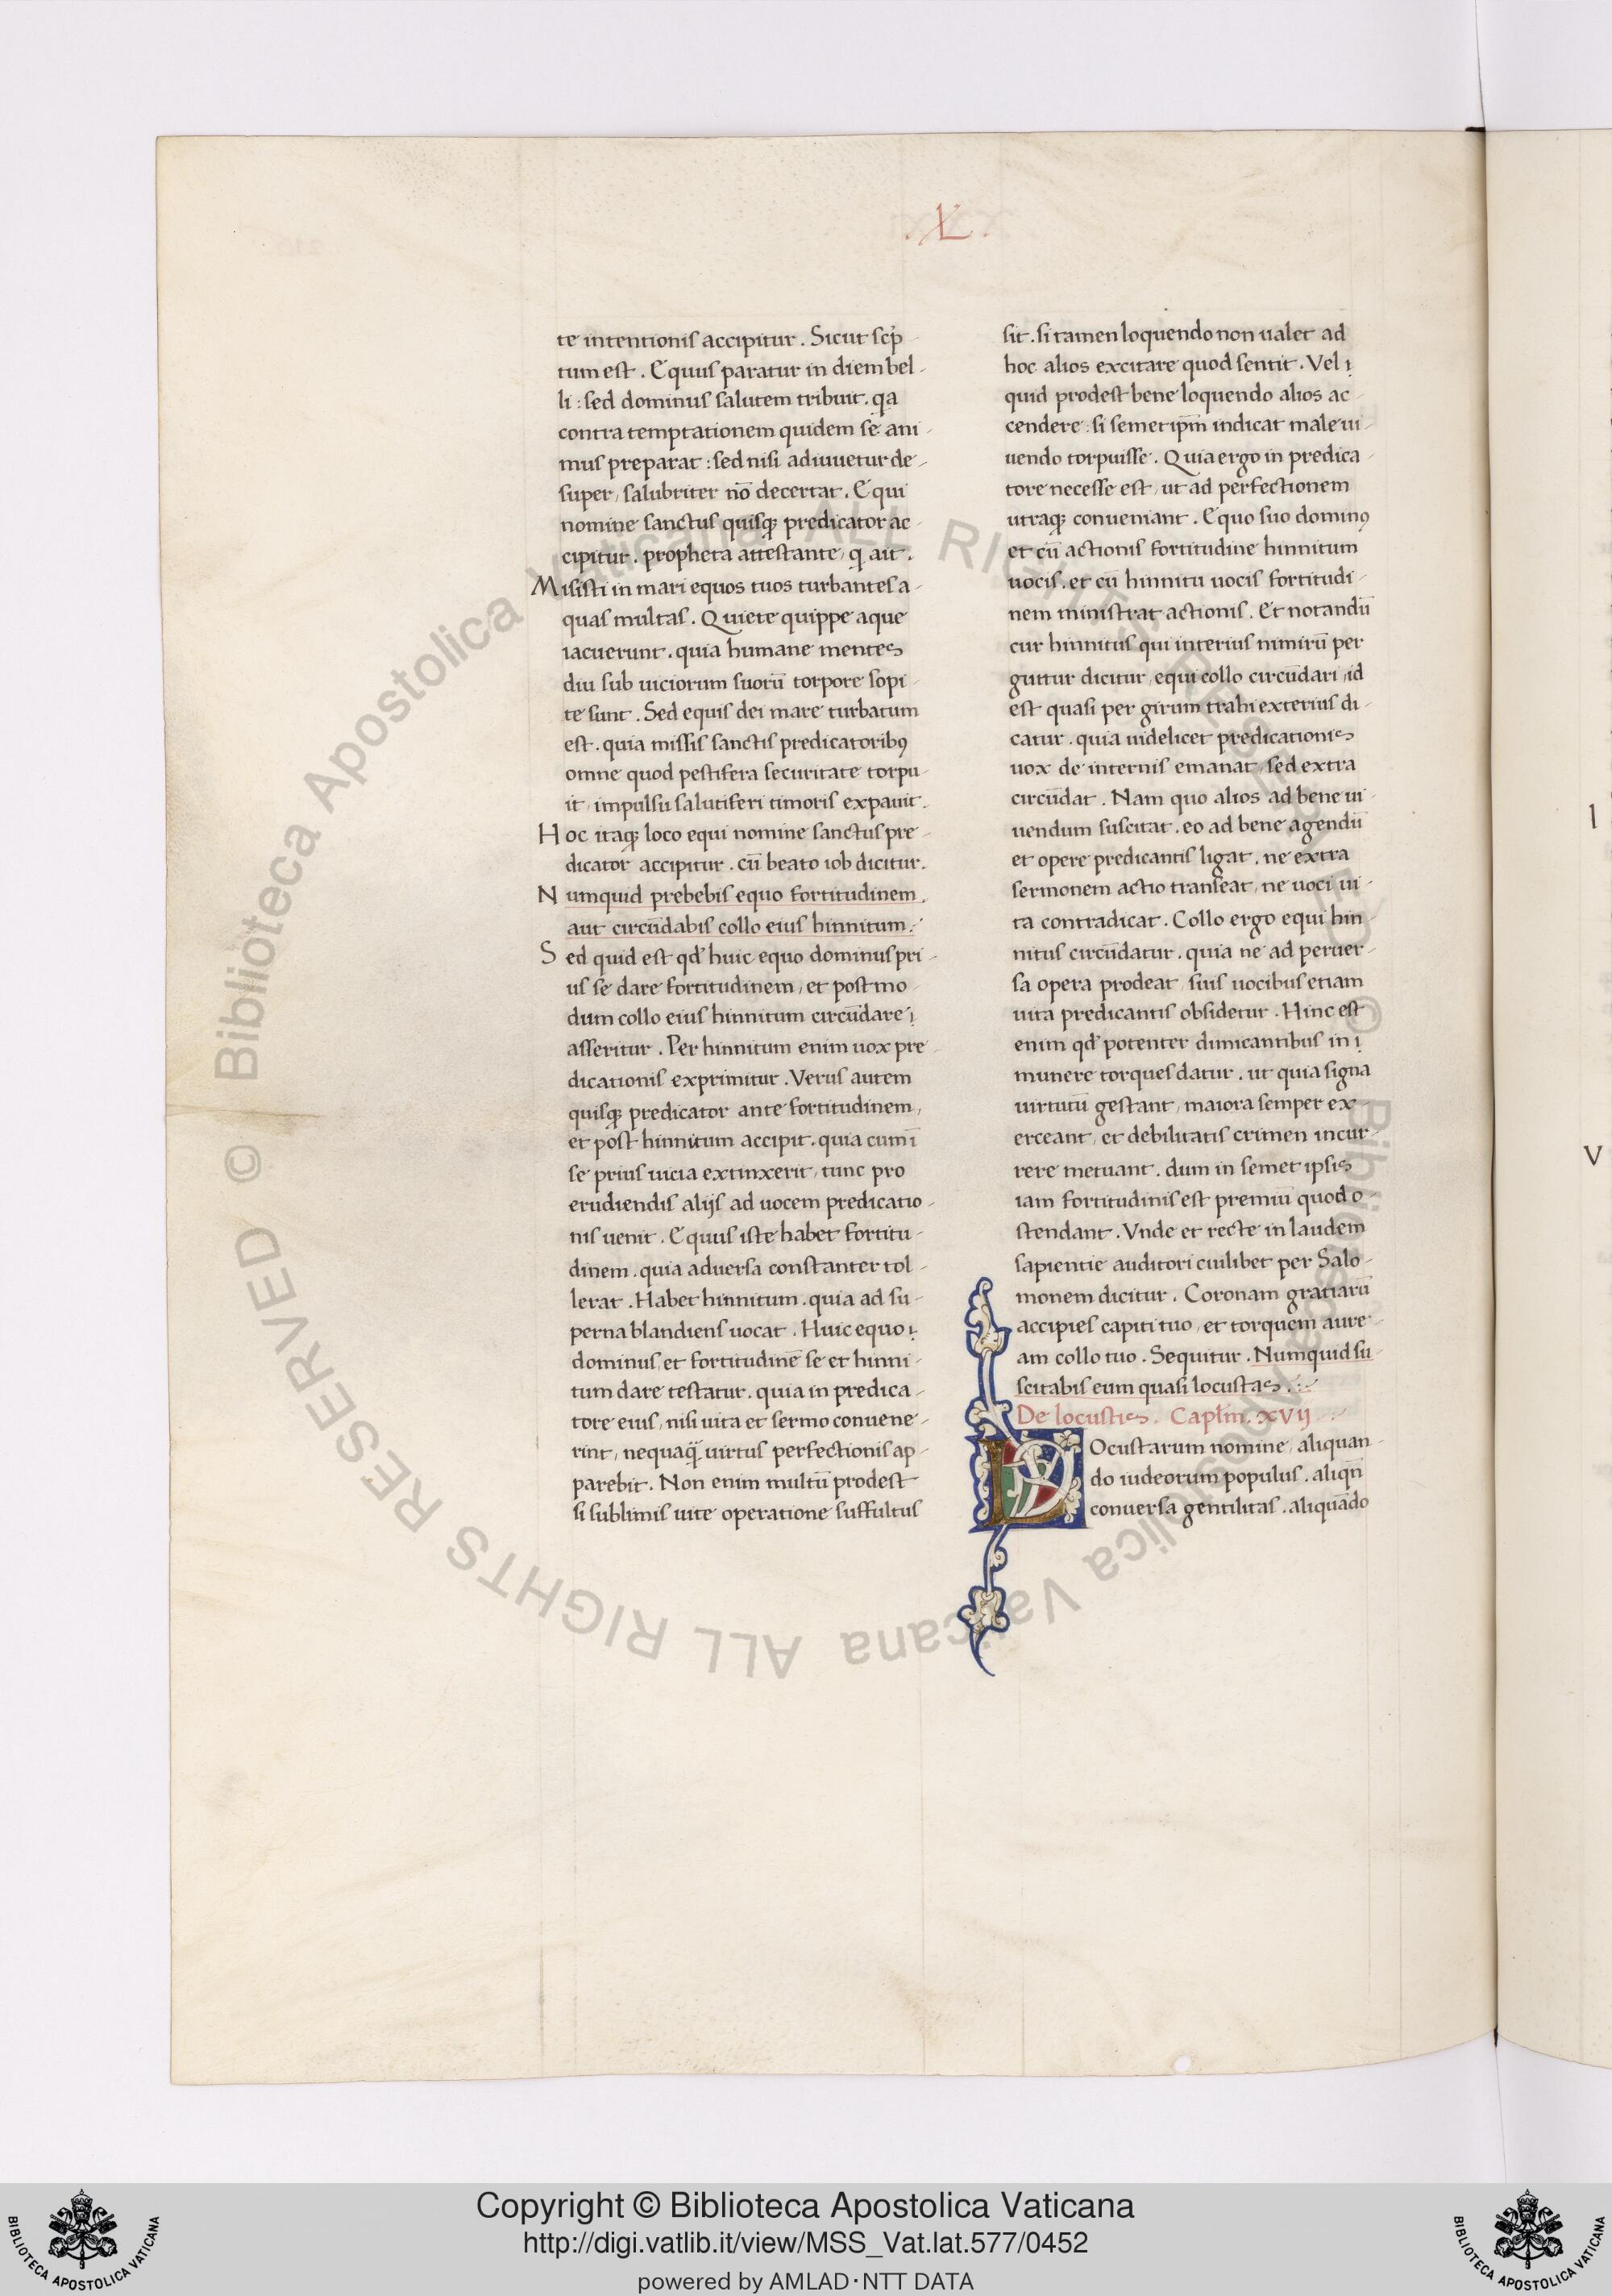 .XL.
te intentionis accipitur. Sicut scp̄
tum est. Equus paratur in diem bel-
li: sed dominus salutem tribuit. qa
contra temptationem quidem se ani-
mus preparat: sed nisi adiuuetur de-
super, salubriter nō decertat. Equi
nomine sanctus quisqꝫ predicator ac-
cipitur. propheta attestante, q ait.
Misisti in mari equos tuos turbantes a-
quas multas. Quiete quippe aque
iacuerunt. quia humane mentes
diu sub uiciorum suorū torpore sopi-
te sunt. Sed equis dei mare turbatum
est. quia missis sanctis predicatoribꝰ
omne quod pestifera securitate torpu-
it, impulsu salutiferi timoris expauit.
Hoc itaqꝫ loco equi nomine sanctus pre-
dicator accipitur. cū beato iob dicitur.
Numquid prebebis equo fortitudinem,
aut circūdabis collo eius hinnitum.
Sed quid est qd̄ huic equo dominus pri-
us se dare fortitudinem, et post mo-
dum collo eius hinnitum circūdare
asseritur. Per hinnitum enim uox pre-
dicationis exprimitur. Verus autem
quisqꝫ predicator ante fortitudinem,
et post hinnitum accipit. quia cum ī
se prius uicia extinxerit, tunc pro
erudiendis alijs ad uocem predicatio-
nis uenit. Equus iste habet fortitu-
dinem. quia aduersa constanter tol-
lerat. Habet hinnitum. quia ad su-
perna blandiens uocat. Huic equo
dominus, et fortitudinē se et hinni-
tum dare testatur. quia in predica-
tore eius, nisi uita et sermo conuene-
rint, nequaq̄ uirtus perfectionis ap-
parebit. Non enim multū prodest
si sublimis uite operatione suffultus
sit. si tamen loquendo non ualet ad
hoc alios excitare quod sentit. Vel
quid prodest bene loquendo alios ac-
cendere: si semet ipm̄ indicat male ui-
uendo torpuisse. Quia ergo in predica-
tore necesse est, ut ad perfectionem
utraqꝫ conueniant. Equo suo dominꝰ
et cū actionis fortitudine hinnitum
uocis. et cū hinnitu uocis fortitudi-
nem ministrat actionis. Et notandū
cur hinnitus qui interius nimirū per
guttur dicitur, equi collo circūdari, id
est quasi per girum trahi exterius di-
catur. quia uidelicet predicationis
uox de internis emanat, sed extra
circūdat. Nam quo alios ad bene ui-
uendum suscitat. eo ad bene agendū
et opere predicantis ligat. ne extra
sermonem actio transeat, ne uoci ui-
ta contradicat. Collo ergo equi hin-
nitus circūdatur. quia ne ad peruer-
sa opera prodeat, suis uocibus etiam
uita predicantis obsidetur. Hinc est
enim qd̄ potenter dimicantibus in
munere torques datur. ut quia signa
uirtutū gestant, maiora semper ex-
erceant, et debilitatis crimen incur-
rere metuant. dum in semet ipsis
iam fortitudinis est premiū quod o-
stendant. Vnde et recte in laudem
sapientie auditori cuilibet per Salo-
monem dicitur. Coronam gratiarū
accipies capiti tuo, et torquem aure-
am collo tuo. Sequitur. Numquid su-
scitabis eum quasi locustas.
De locustis. Capl̄m. xvij
LOcustarum nomine, aliquan-
do iudeorum populus. aliqn̄
conuersa gentilitas. aliquādo
l
V
© Biblioteca Apostolica Vaticana ALL RIGHTS RESERVED
© Biblioteca Apostolica Vaticana ALL RIGHTS RESERVED
Copyright © Biblioteca Apostolica Vaticana
http://digi.vatlib.it/view/MSS_Vat.lat.577/0452
powered by AMLAD·NTT DATA
BIBLIOTECA APOSTOLICA VATICANA
BIBLIOTECA APOSTOLICA VATICANA